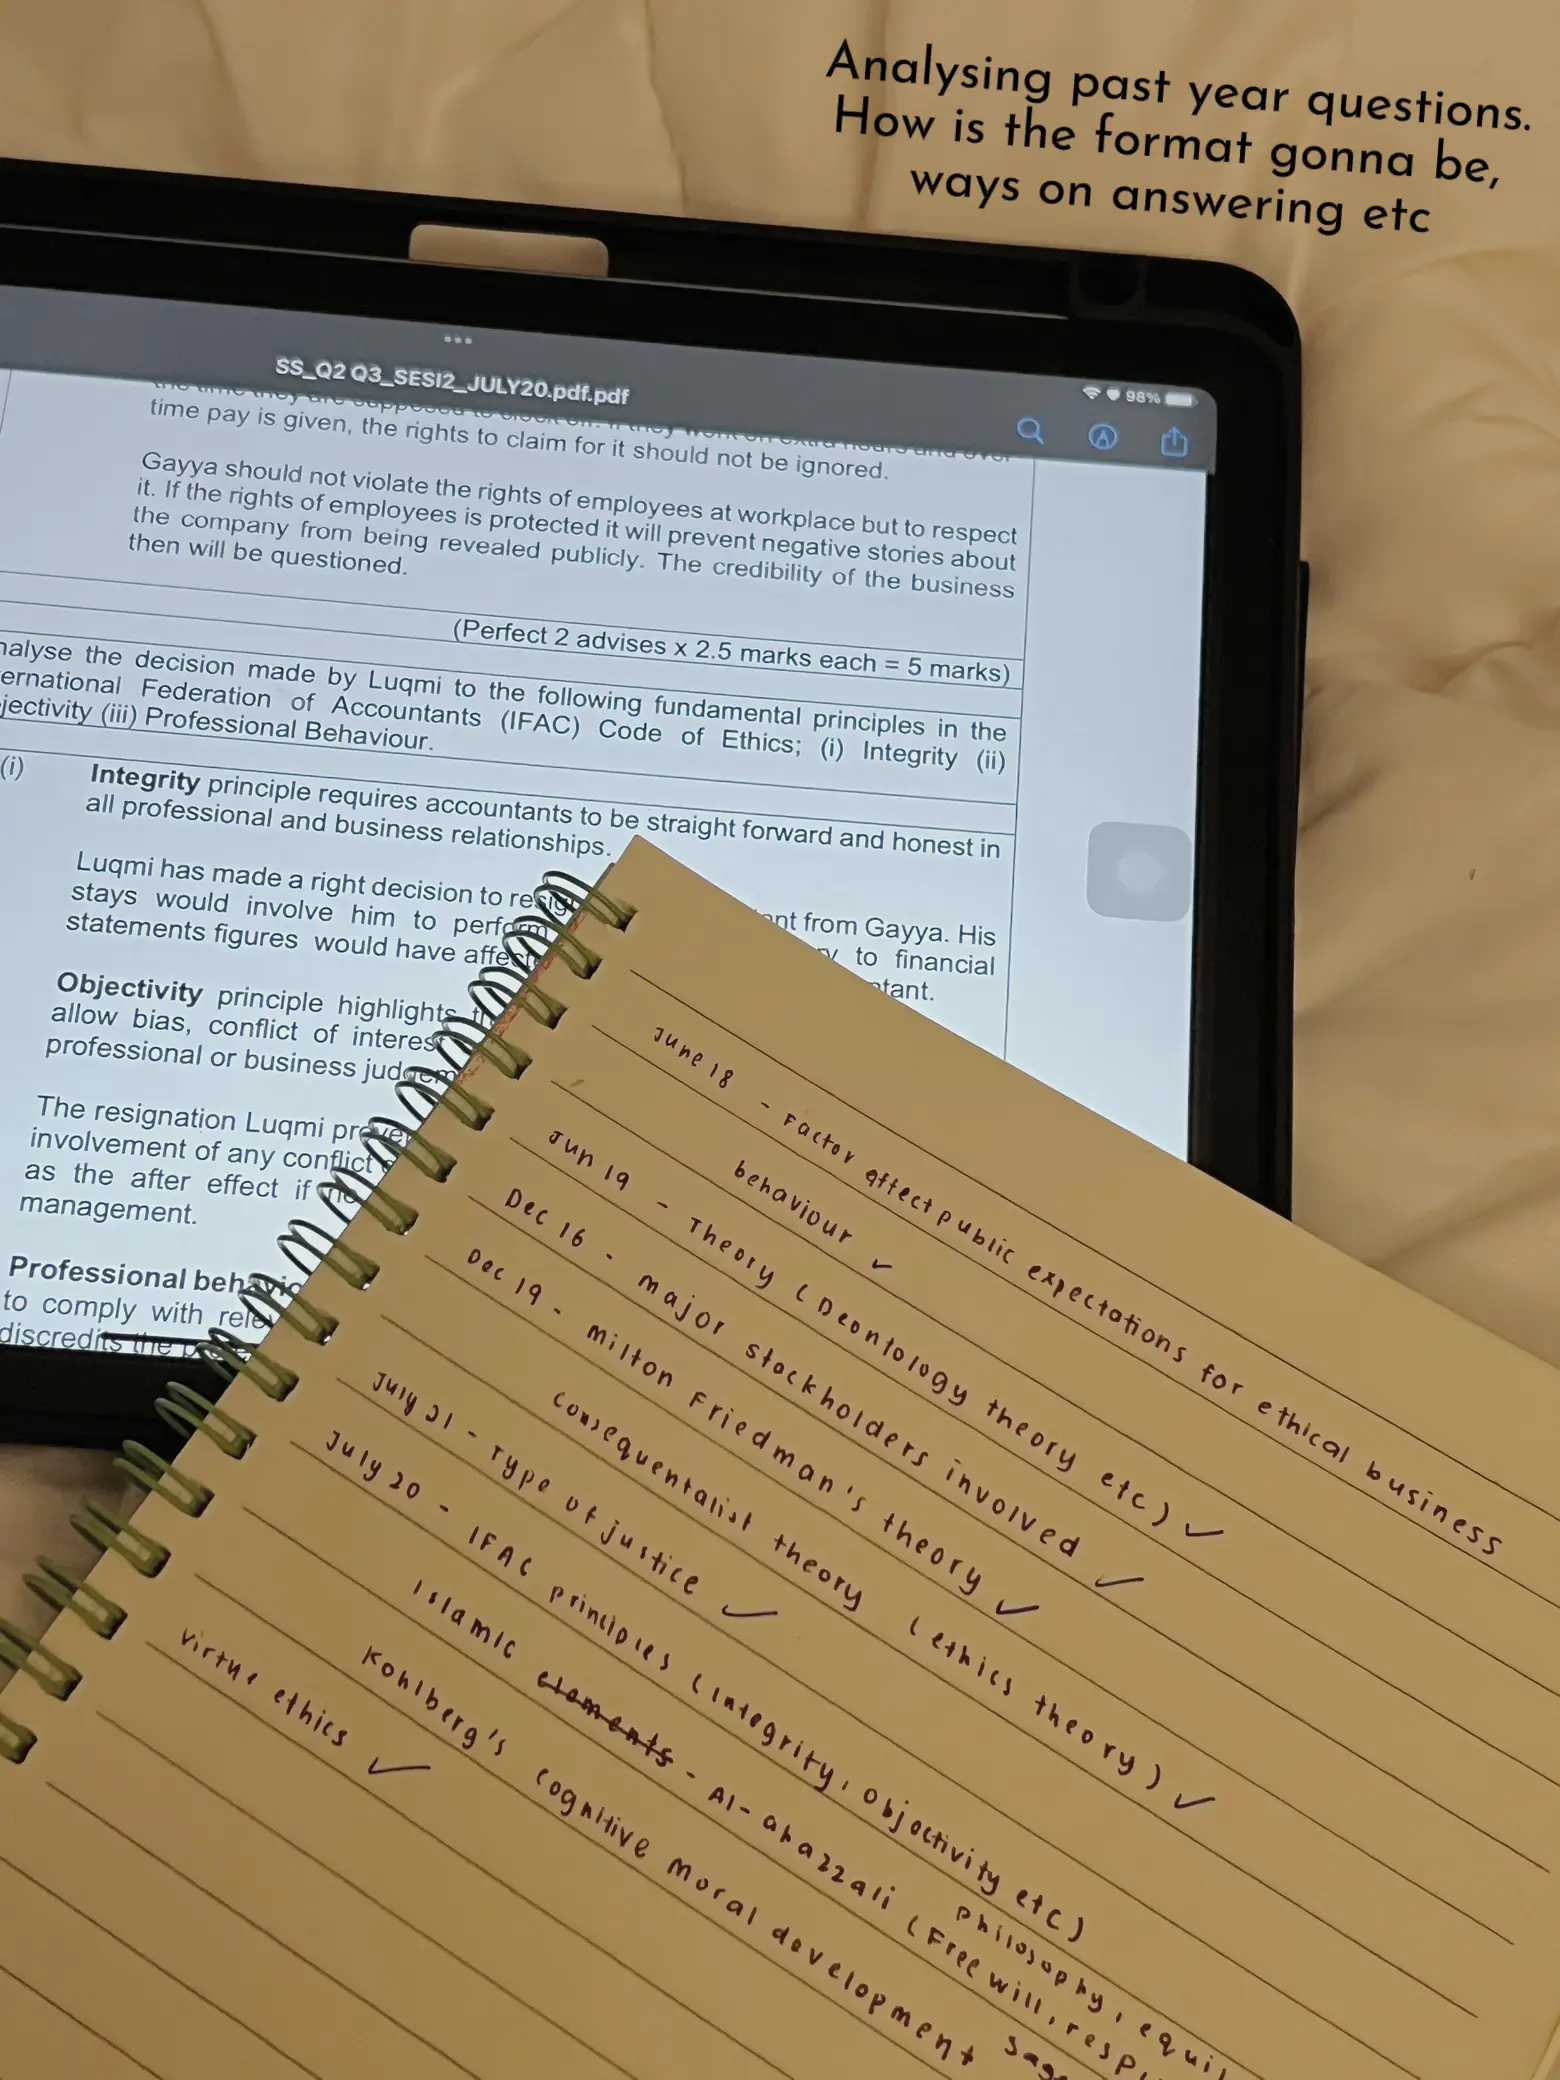 Analysing past year questions.
How is the format gonna be,
ways on answering etc
SS_Q2 Q3_SESI2_JULY20.pdf.pdf
98%
time pay is given, the rights to claim for it should not be ignored.
Gayya should not violate the rights of employees at workplace but to respect
it. If the rights of employees is protected it will prevent negative stories about
the company from being revealed publicly. The credibility of the business
then will be questioned.
(Perfect 2 advises x 2.5 marks each = 5 marks)
nalyse the decision made by Luqmi to the following fundamental principles in the
ernational Federation of Accountants (IFAC) Code of Ethics; (i) Integrity (ii)
jectivity (iii) Professional Behaviour.
(i) Integrity principle requires accountants to be straight forward and honest in
all professional and business relationships.
Luqmi has made a right decision to resig nt from Gayya. His
stays would involve him to perform to financial
statements figures would have affec tant.
Objectivity principle highlights
allow bias, conflict of interes
professional or business judgem
The resignation Luqmi preve
involvement of any conflict
as the after effect if he
management.
Professional behavio
to comply with rele
discredits the
June 18 - Factor affect public expectations for ethical business
behaviour ✓
Jun 19 - Theory (Deontology theory etc) ✓
Dec 16 - major stockholders involved ✓
Dec 19 - milton Friedman's theory ✓
consequentalist theory (ethics theory) ✓
July 21 - Type of justice ✓
July 20 - IFAC principles (integrity, objectivity etc)
Islamic elements - Al-ahazzali (Free will, resp
Philosophy, equil
Kohlberg's cognitive moral development
virtue ethics ✓